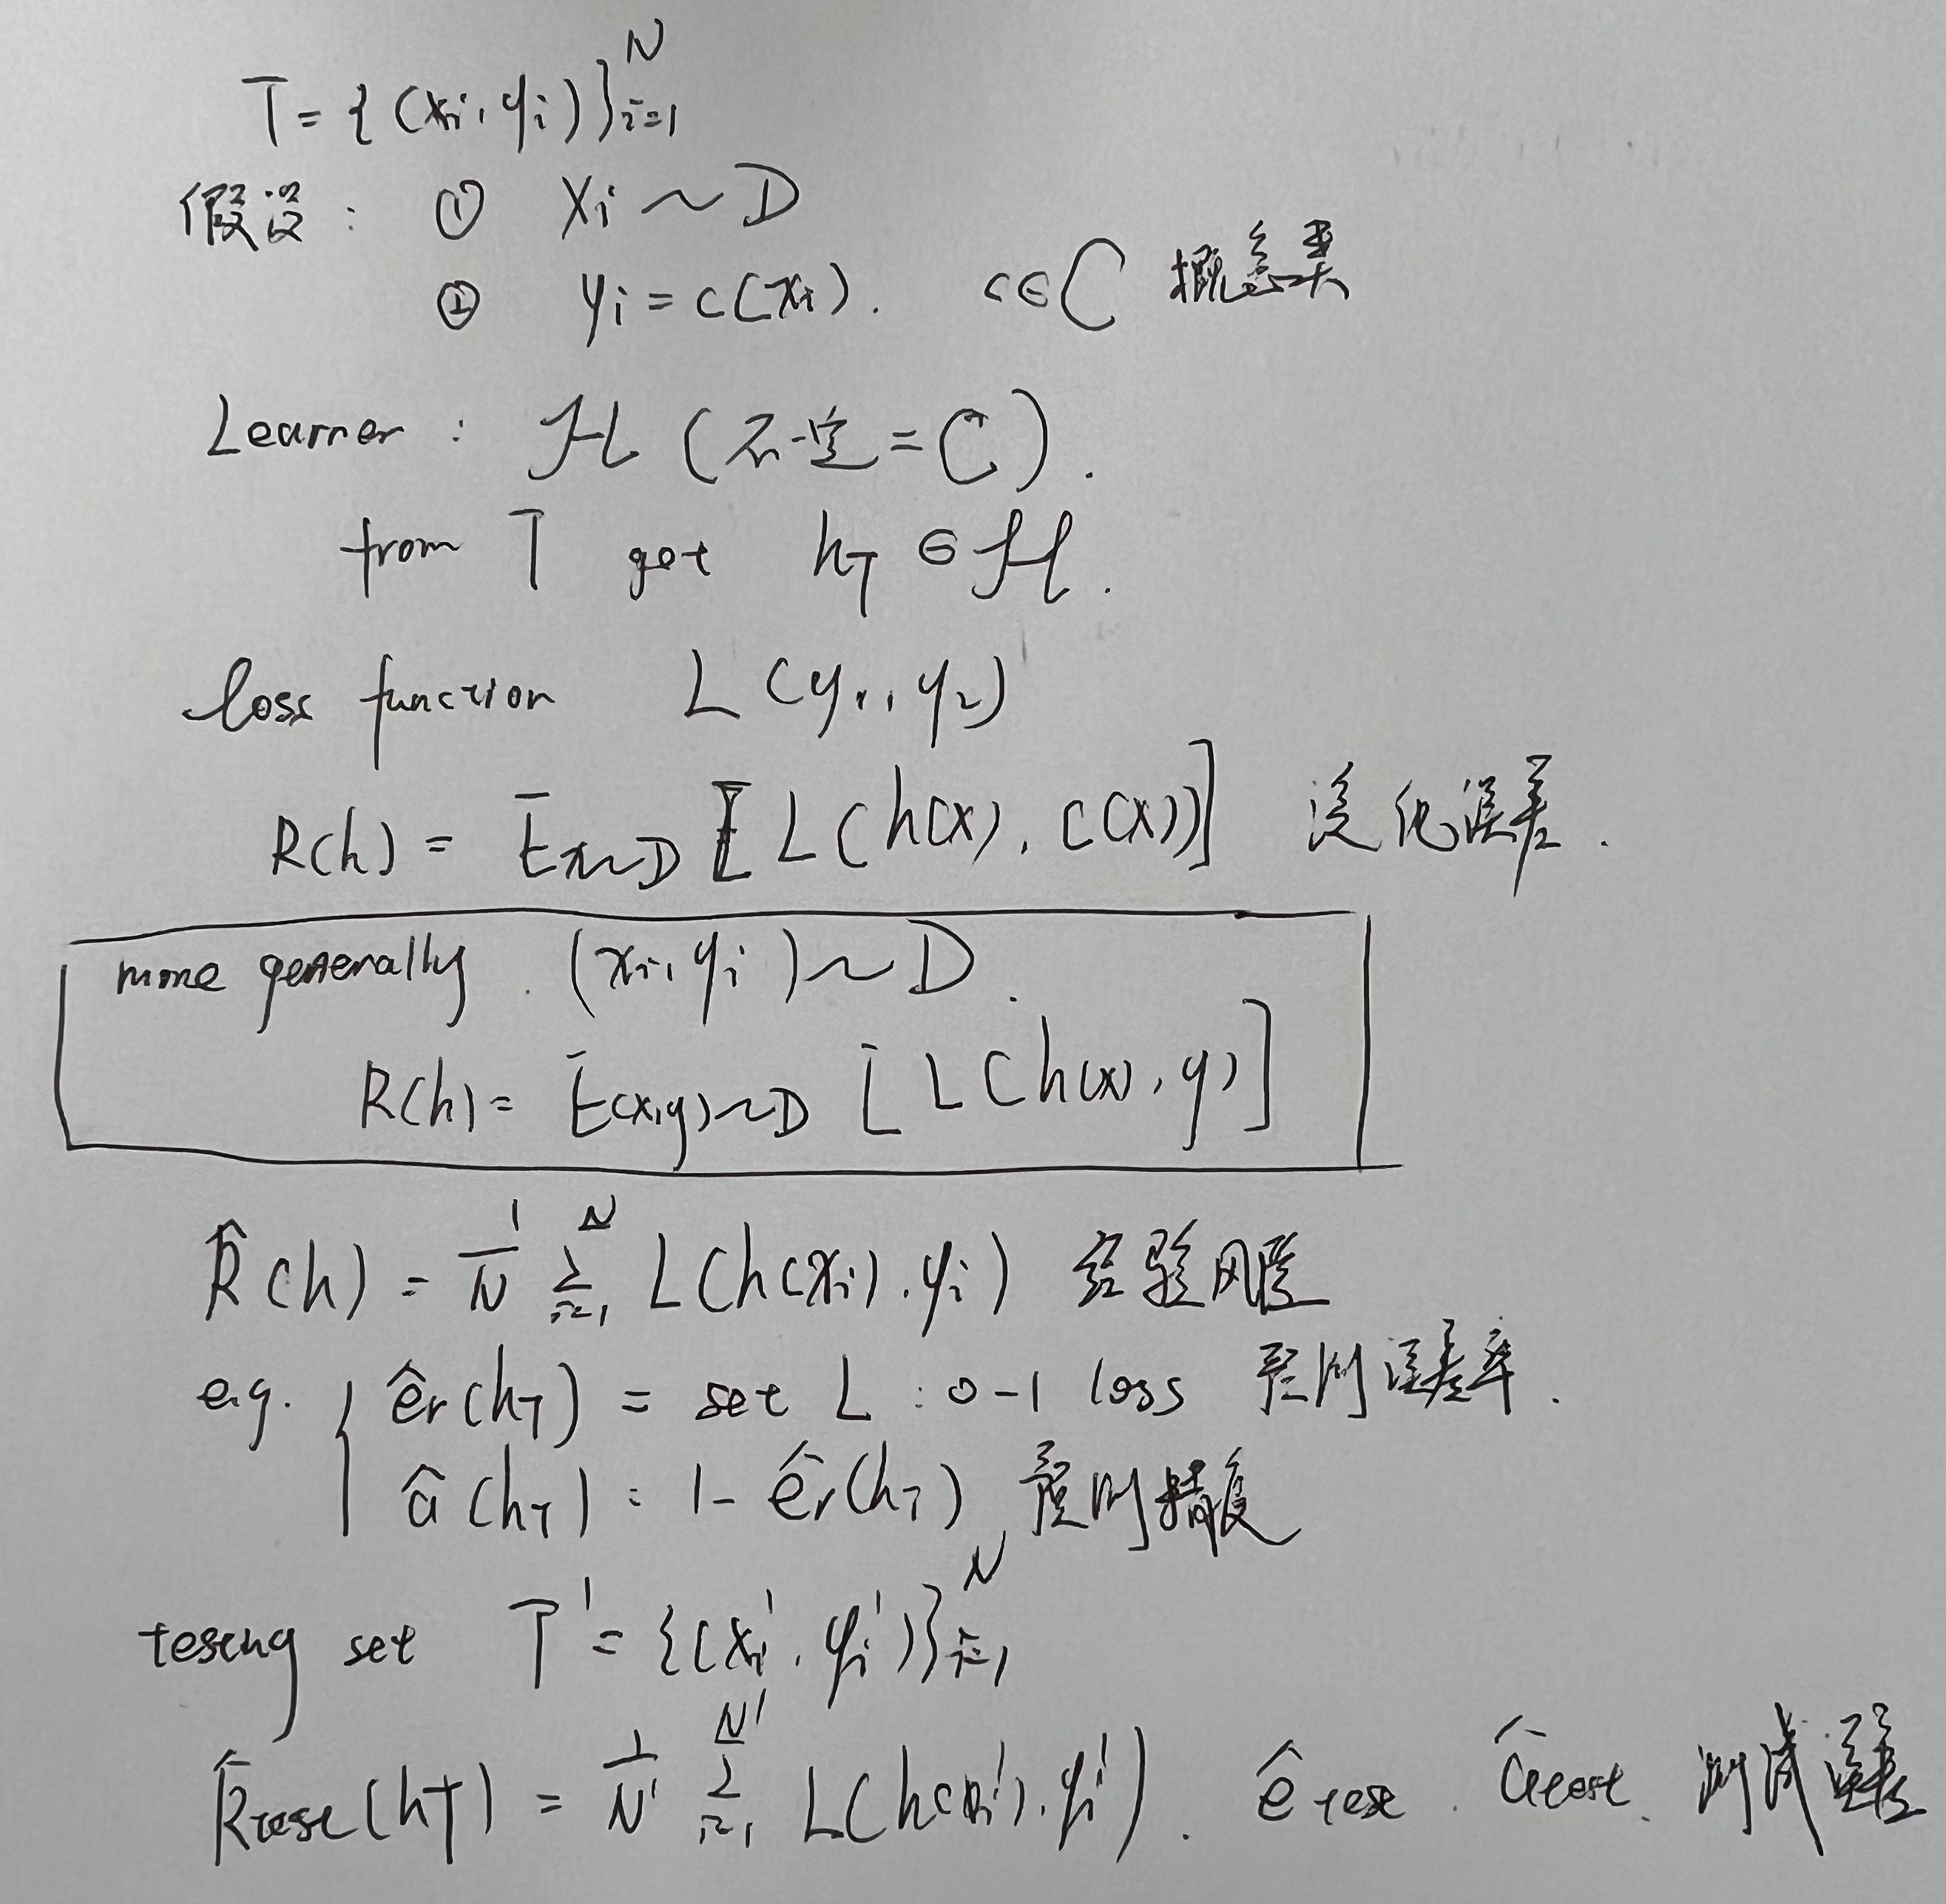 T = { (xi, yi) }_{i=1}^N
假设: ① Xi ~ D
② yi = c(xi). c∈C 概念类
Learner: H (不一定=C).
from T get h_T ∈ H.
loss function L(y1, y2)
R(h) = E_{x~D} [L(h(x), c(x))] 泛化误差.
more generally. (xi, yi) ~ D.
R(h) = E_{(x,y)~D} [L(h(x), y)]
R̂(h) = 1/N Σ_{i=1}^N L(h(xi), yi) 经验风险
e.g. { êr(h_T) = set L: 0-1 loss 预测误差率.
â(h_T) = 1 - êr(h_T) 预测精度
testing set T' = {(xi', yi')}_{i=1}^N
R̂test(h_T) = 1/N' Σ_{i=1}^{N'} L(h(xi'), yi'). êtest. âtest. 测试误差